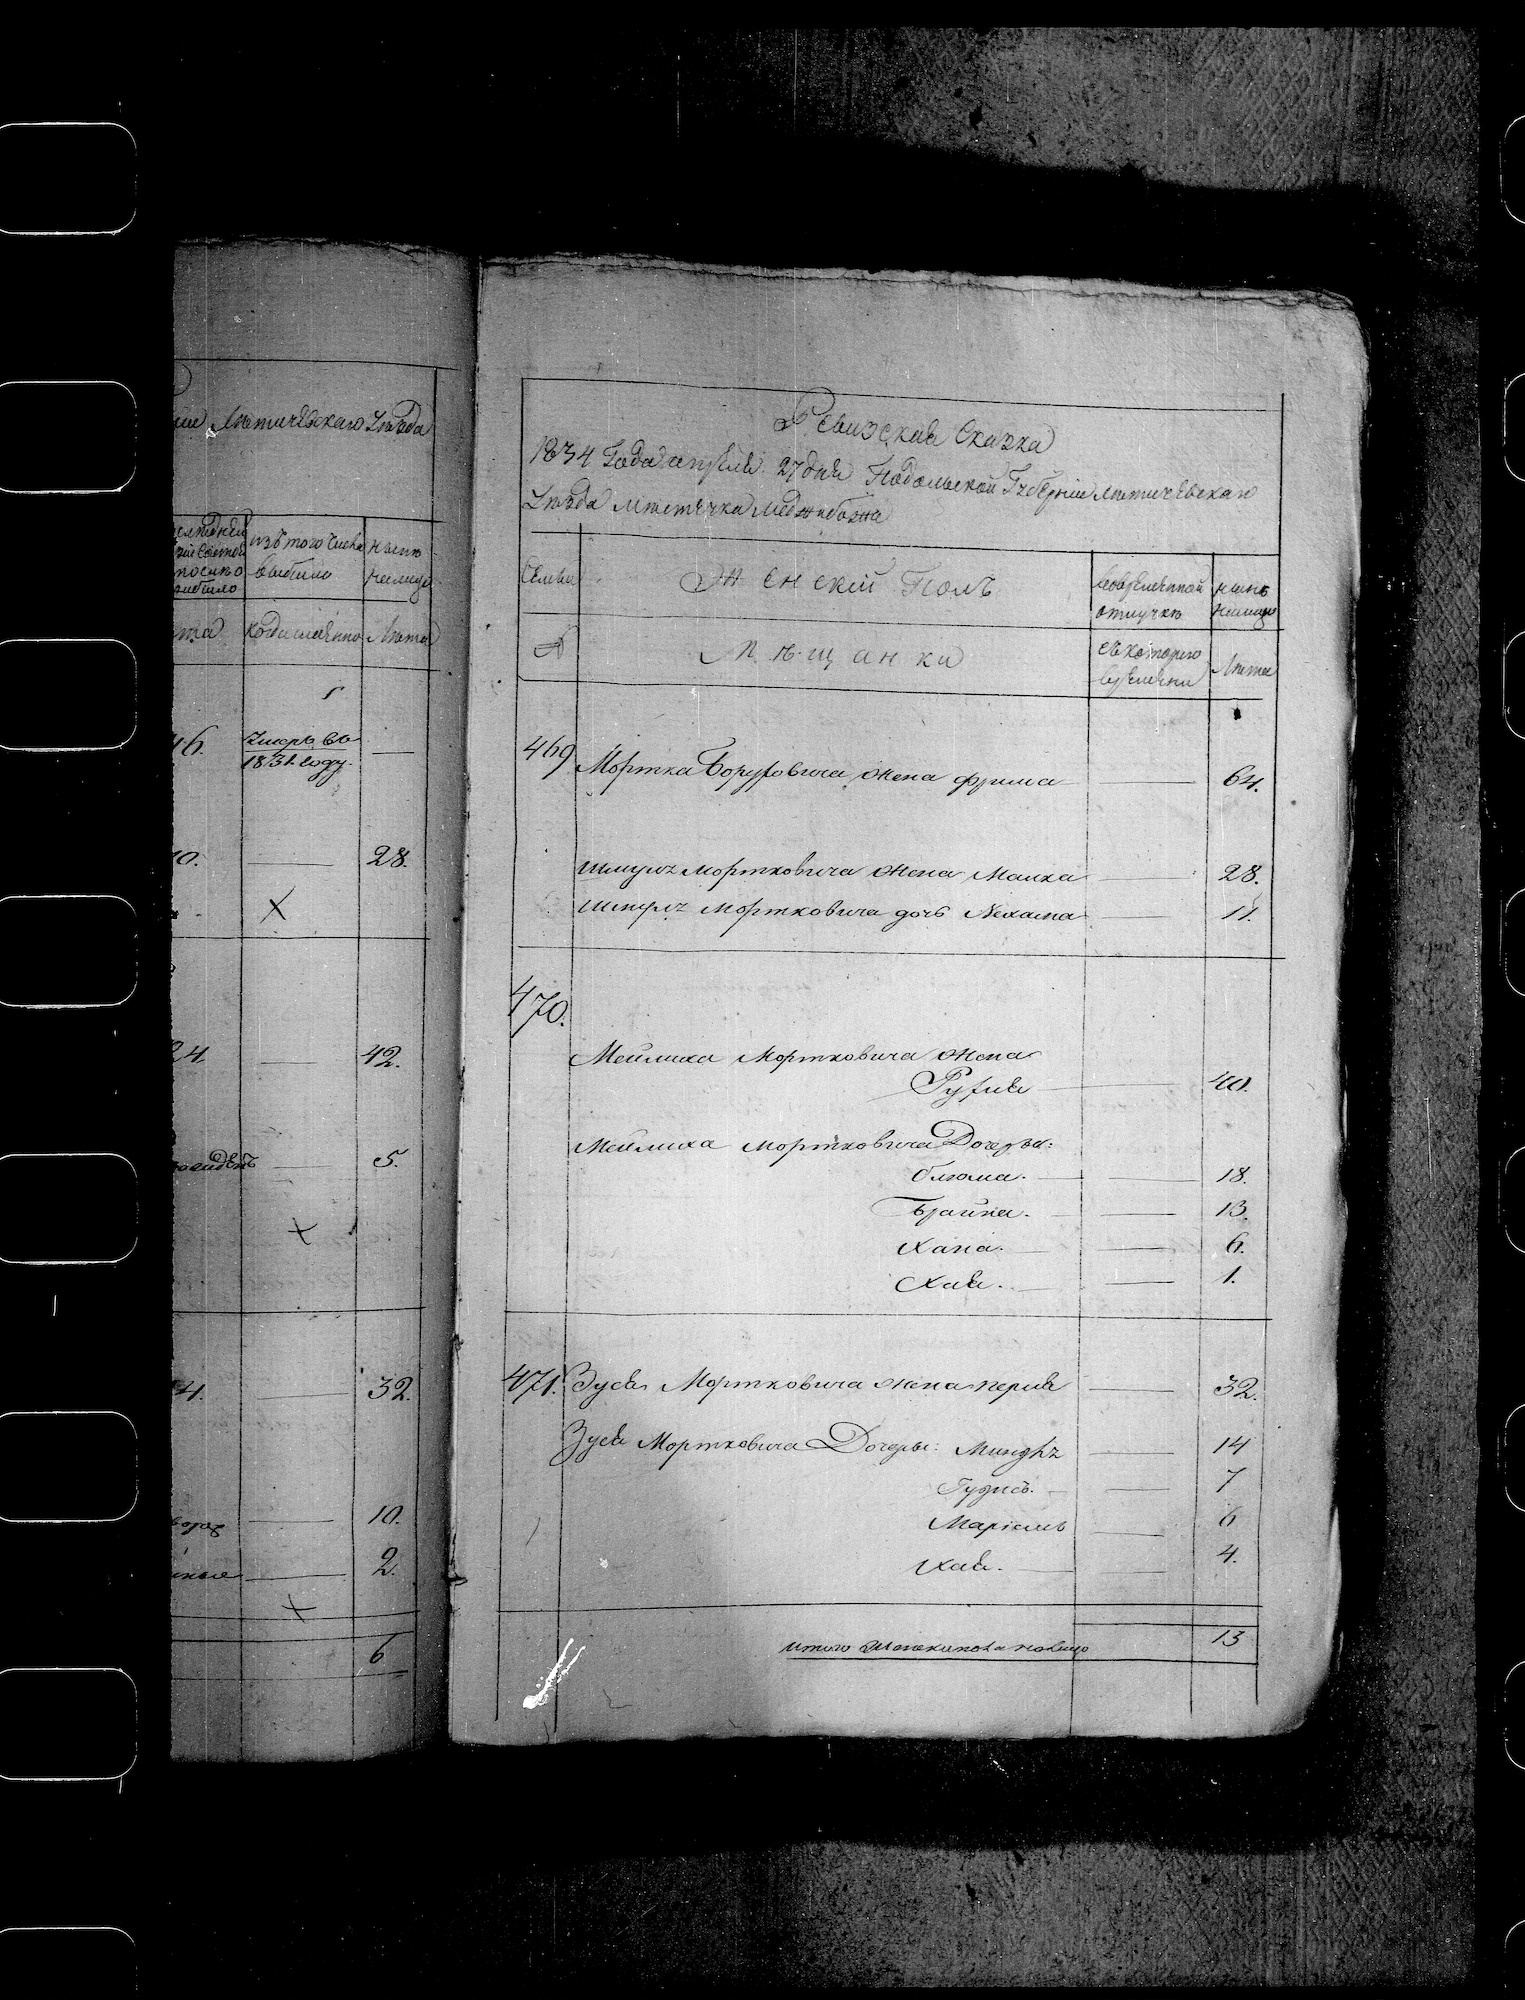 Лѣтичевскаго Уѣзда
изъ того числа
выбыло
нынѣ
налицо
когда имянно
Лѣта
46.
умеръ въ
1831 году.
28.
42.
5.
32.
10.
2.
6
Ревизская Сказка
1834 Года апреля 27 дня Подольской Губерніи Лѣтичевскаго
Уѣзда Мѣстечка Меджибожа
Семьи
Женскій Полъ
во временной
отлучкѣ
нынѣ
налицо
№
Мѣщанки
съ котораго
времени
Лѣта
469 Мортка Боруховича жена Фрима 64.
Шмулъ Мортковича жена Малка 28.
Шмулъ Мортковича дочь Нехама 11.
470.
Мейлиха Мортковича жена
Рухля 40.
Мейлиха Мортковича Дочеры:
блюма. 18.
Брайна. 13.
Хана. 6.
Хая. 1.
471. Зуся Мортковича жена перля 32.
Зуся Мортковича Дочеры: 14
7
Маріемъ 6
Хая. 4.
итого женскаго пола налицо 13